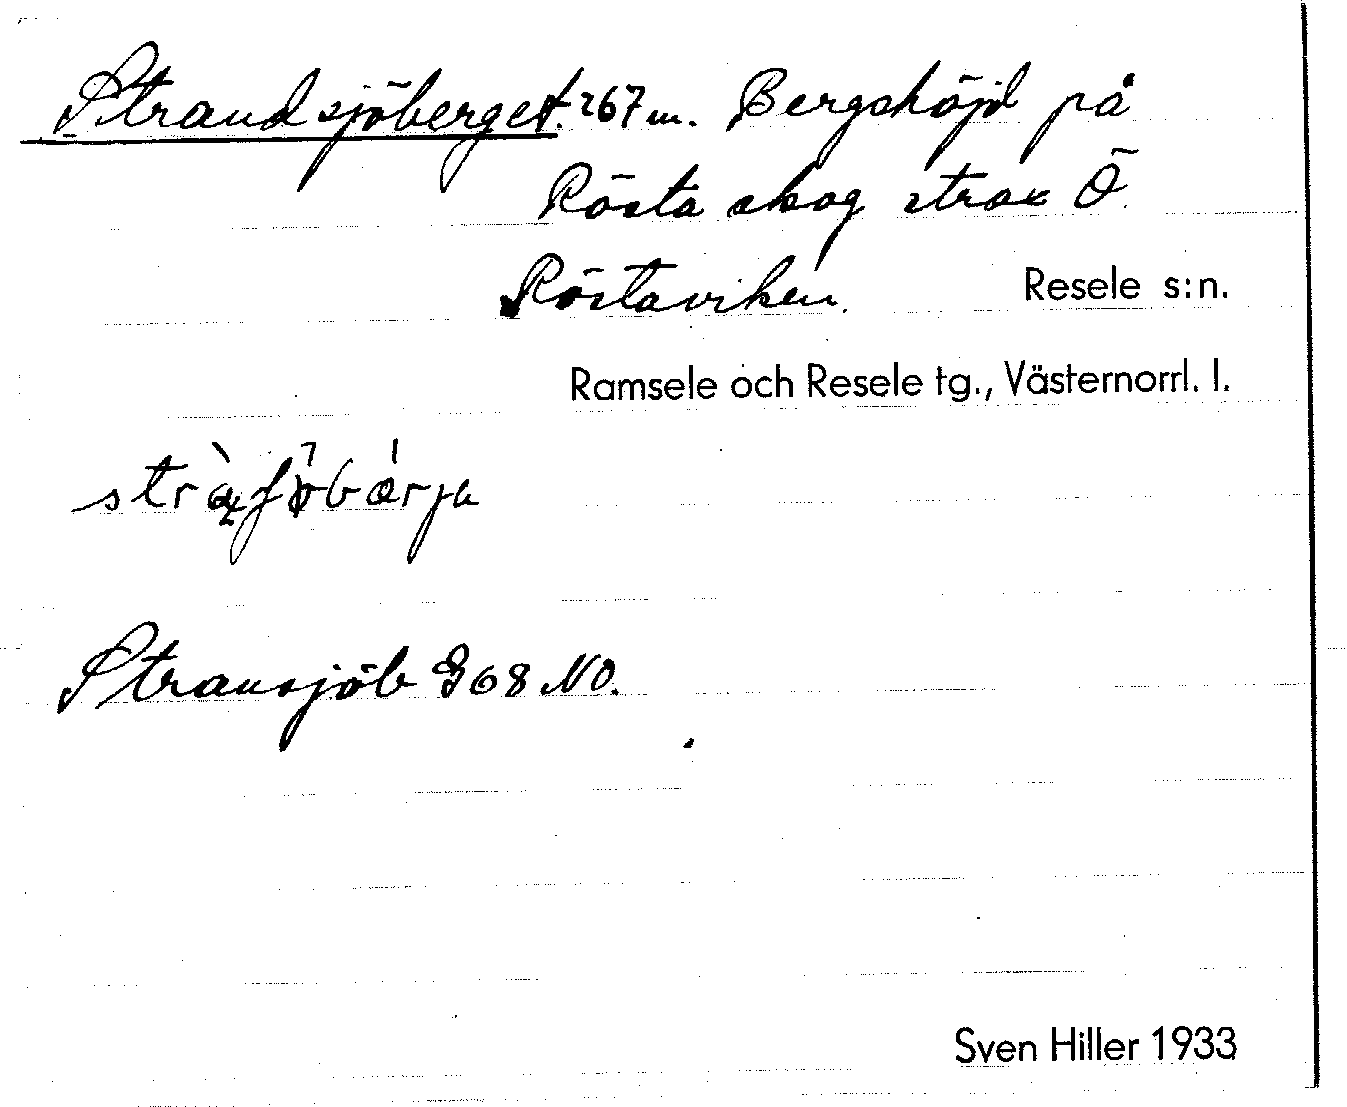 Strandsjöberget. 267 m. Bergshöjd på
Rösta skog strax Ö
Röstaviken.
Resele s:n.
Ramsele och Resele tg., Västernorrl. l.
Stransjöb G68 NO.
Sven Hiller 1933